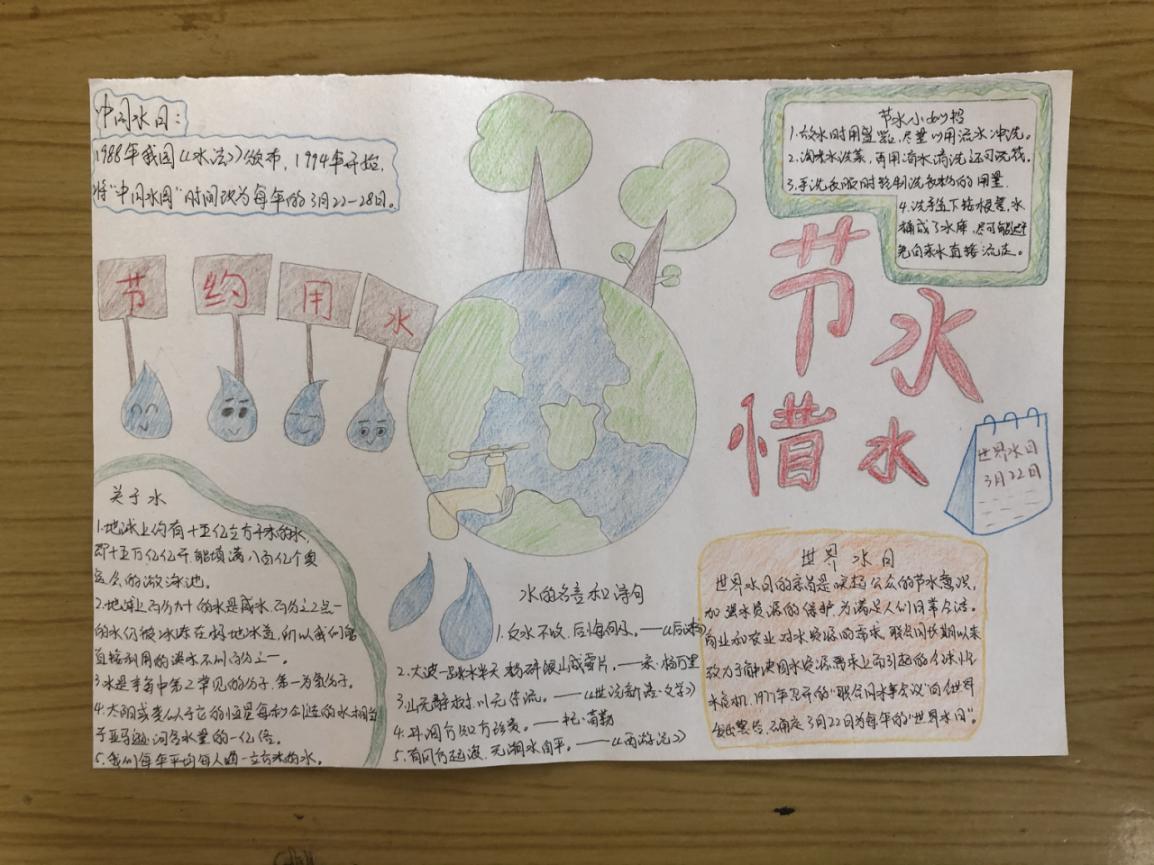 中国水日：
1988年我国《水法》颁布，1994年开始，
将“中国水周”时间改为每年的3月22-28日。
节 约 用 水
节水小妙招
1.放水时用盆，尽量少用流水冲洗。
2.淘米水洗菜，再用清水清洗
3.手洗衣服时控制洗衣粉的用量
4.洗手盆下接水
桶或了水库，尽可能避
免自来水直接流走。
节水
惜水
世界水日
3月22日
关于水
1.地球上约有十五亿立方千米的水，
即十五万亿亿升，能填满八百亿个奥
运会的游泳池。
2.地球上百分九十的水是咸水，百分之2点一
的水仍被冰冻在两地冰盖，所以我们能
直接利用的淡水不到百分之一。
3.水是宇宙中第2常见的分子，第一为氢分子。
4.太阳或类似于它的恒星每秒创造的水相当
于亚马逊河含水量的一亿倍。
5.我们每年平均每人喝一立方米的水。
水的名言和诗句
1.反水不收，后悔何及。——《后汉书》
2.大波一跳水半天，粉碎银山成雪片。——宋·杨万里
3.山无静树，川无停流。——《世说新语·文学》
4.水
5.有风方起浪，无潮水自平。——《西游记》
世界水日
世界水日的宗旨是唤起公众的节水意识，
加强水资源的保护。为满足人们日常生活、
商业和农业对水资源的需求，联合国长期以来
致力于解决因水资源需求上升引起的全球性
水危机，1977年召开的“联合国水事会议”向全世界
发出警告，确定3月22日为每年的“世界水日”。